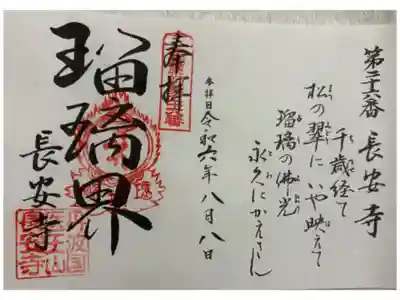 第二十六番 長安寺
千歳経て
松の翠に いや映えて
瑠璃の佛光
永久にかゞやかん
参拝日 令和六年 八月八日
奉拝
瑠璃界
長安寺
長安寺